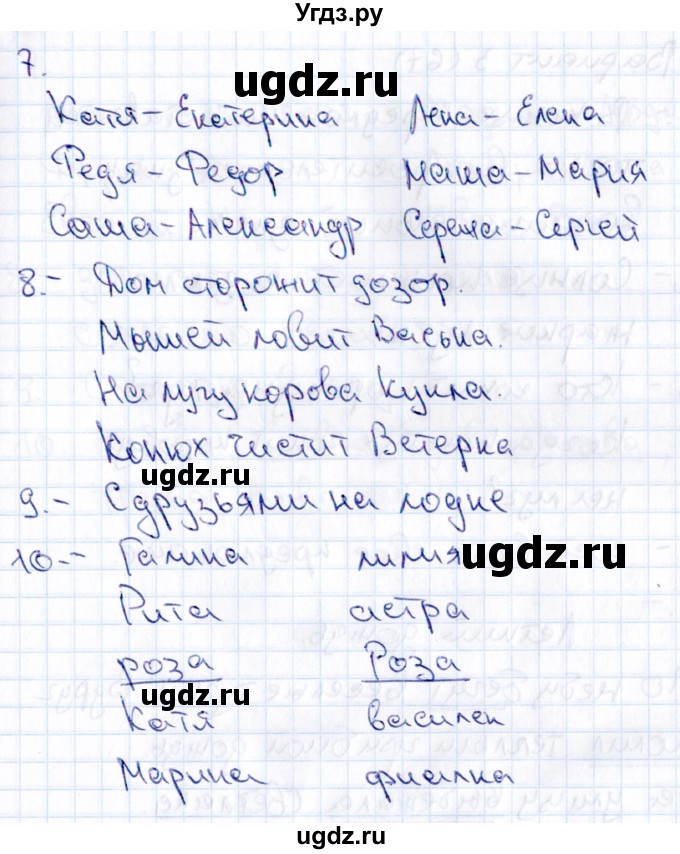 Угдз.ру
7.
ugdz.ru
Катя - Екатерина Лена - Елена
Федя - Федор Маша - Мария
Саша - Александр Сережа - Сергей
8. - Дом сторожит дозор.
Мышей ловит Васька.
На лугу корова Кукла.
Конюх чистит Ветерка
ugdz.ru
9. - С друзьями на лодке
10. - Галина лилия
ugdz.ru
Рита астра
роза Роза
ugdz.ru
Катя василек
Марина фиалка
ugdz.ru